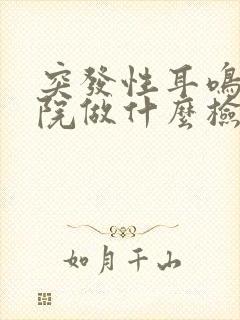 突發性耳鳴
院做什麼檢
如月千山